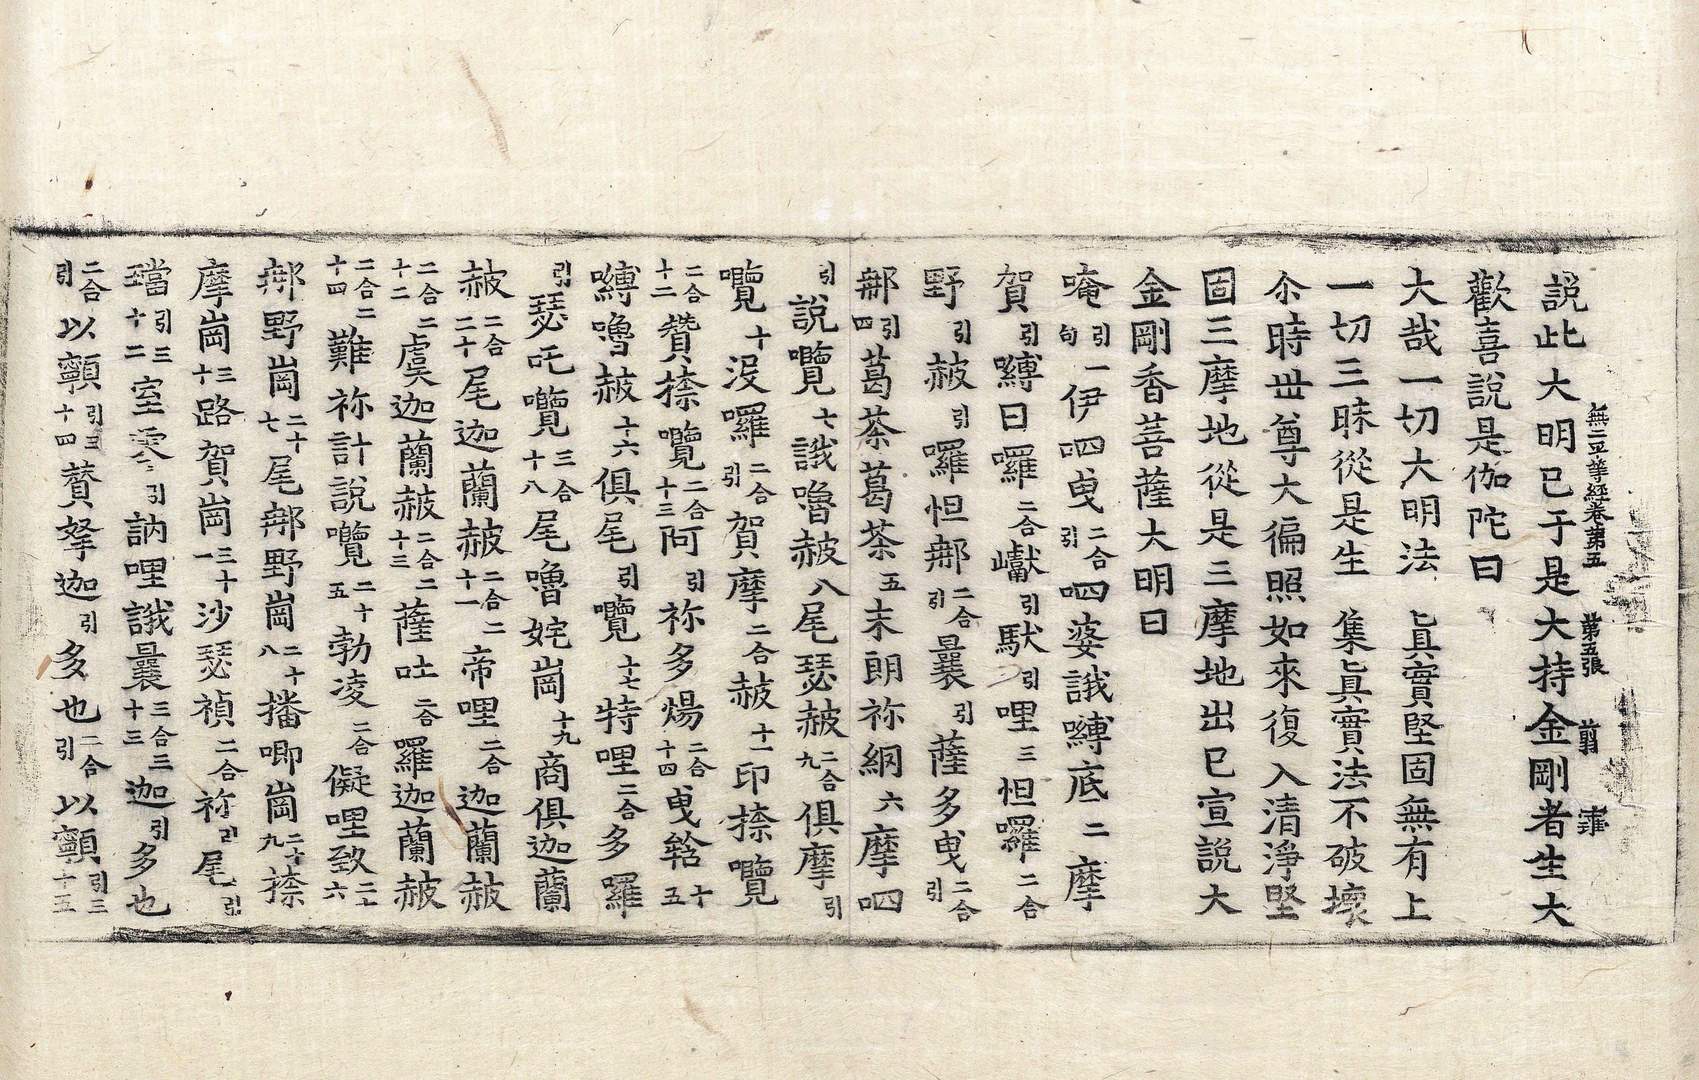 無二平等經卷第五　第五張　翦
說此大明已于是大持金剛者生大
歡喜說是伽陀曰
大哉一切大明法　眞實堅固無有上
一切三昧從是生　集眞實法不破壞
尒時丗尊大徧照如來復入清淨堅
固三摩地從是三摩地出已宣說大
金剛香菩薩大明曰
唵引一句伊呬曳二合引呬婆誐嚩底二摩
賀引嚩日囉二合巘引馱引哩三怛囉二合
野引赧引囉怛𨚗二合引曩引薩多曳二合引
𨚗引四葛茶葛茶五末朗祢網六摩呬
引說㘕七誐嚕赧八尾瑟赧二合九俱摩引
㘕十沒囉二合引賀摩二合赧十一印捺㘕
二合十二贊捺㘕二合十三阿引祢多煬二合十四曳䤴十五
嚩嚕赧十六俱尾引㘕十七特哩二合多囉
引瑟吒㘕三合十八尾嚕姹崗十九商俱迦蘭
赧二合二十尾迦蘭赧二合二十一帝哩二合迦蘭赧
二合二十二虞迦蘭赧二合二十三薩吐二合羅迦蘭赧
二合二十四難祢計說㘕二十五勃凌二合儗哩致二十六
𨚗野崗二十七尾𨚗野崗二十八播唧崗二十九捺
摩崗三十路賀崗三十一沙瑟禎二合祢引尾引
璫引三十二室引訥哩誐曩三合三十三迦引多也
二合引以𩕳引三十四贊拏迦引多也二合引以𩕳引三十五